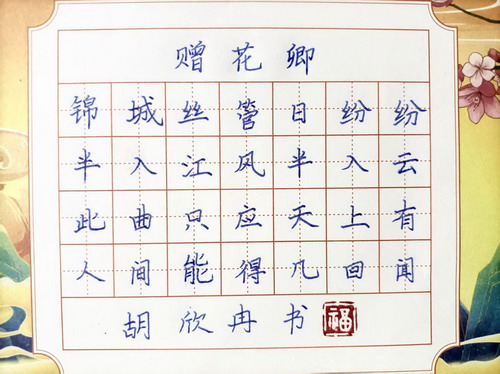 赠花卿
锦城丝管日纷纷
半入江风半入云
此曲只应天上有
人间能得几回闻
胡欣冉书 福